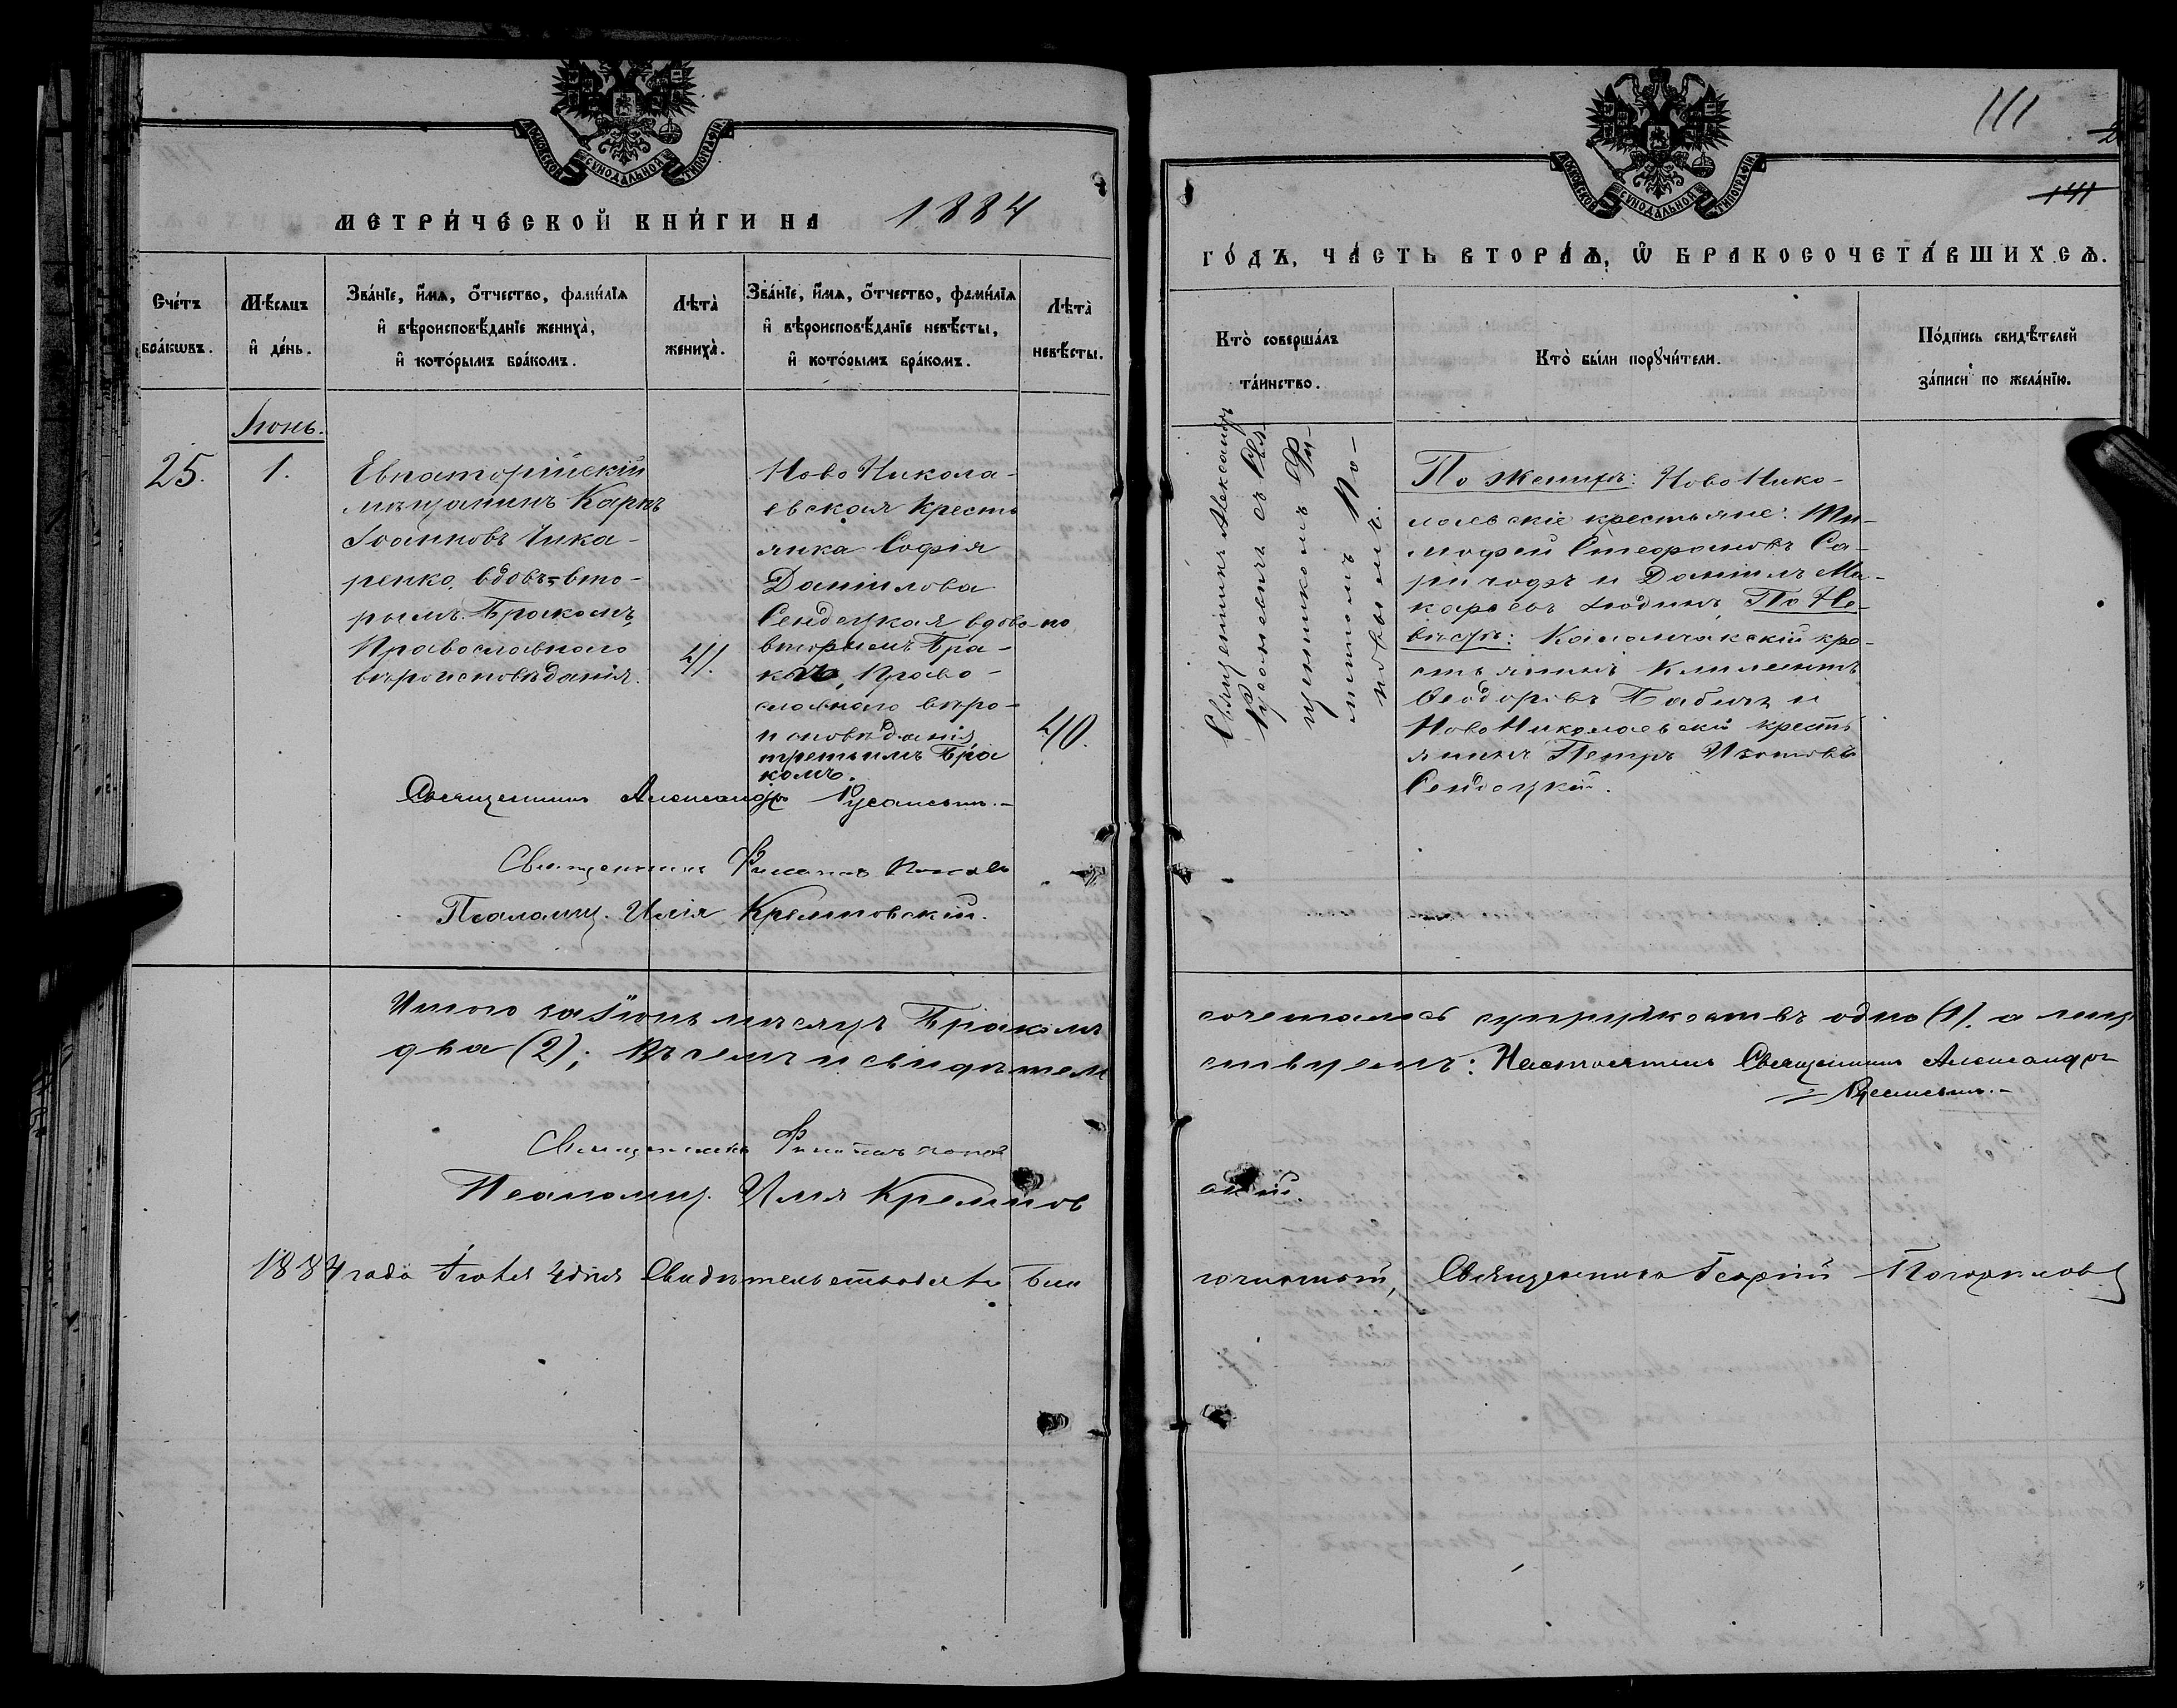 МОСКОВСКОЙ СУНОДАЛЬНОЙ ТИПОГРАФІИ
МЕТРИ́ЧЕСКОЙ КНИ́ГИ НА 1884
Сче́тъ бра́кѡвъ.
Мѣ́сѧцъ и҆ де́нь.
Зва́нїе, и҆́мѧ, ѻ҆́тчество, фами́лїѧ
и҆ вѣроисповѣ́данїе жениха̀,
и҆ кото́рымъ бра́комъ.
Лѣта̀ жениха̀.
Зва́нїе, и҆́мѧ, ѻ҆́тчество, фами́лїѧ
и҆ вѣроисповѣ́данїе невѣ́сты,
и҆ кото́рымъ бра́комъ.
Лѣта̀ невѣ́сты.
Іюнь.
25.
1.
Евпаторійскій
мѣщанинъ Карпъ
Іоанновъ Чика-
ренко, вдовъ, вто-
рымъ Бракомъ,
Православнаго
вѣроисповѣданія.
41.
Ново Никола-
евская Кресть
янка Софія
Даніилова
Сендецкая вдова по
вторымъ Бра-
Право-
славнаго вѣро-
исповѣданія
третьимъ Бра
комъ.
40.
Священникъ Александръ Русаневичъ.
Священникъ Филиппъ Поповъ
Псаломщ. Илія Кремповскій.
Итого за Іюнь мѣсяцъ Бракомъ
два (2); Въ чемъ и свидѣтел
Священникъ Филиппъ Попов
Псаломщ. Илія Кремпов
1884 года Іюля 4 дня Свидѣтельствовалъ Бла
111
141
МОСКОВСКОЙ СУНОДАЛЬНОЙ ТИПОГРАФІИ
ГО́ДЪ, ЧА́СТЬ ВТОРА́Ѧ, Ѡ҆ БРАКОСОЧЕТА́ВШИХСѦ.
Кто̀ соверша́лъ та́инство.
Кто̀ бы́ли порꙋчи́тели.
По́дпись свидѣ́телей за́писи по жела́нїю.
Священникъ Александръ
Русаневичъ съ Свя-
щенникомъ Фи-
липпомъ По-
повымъ.
По Женихѣ: Ново Нико-
лаевскіе крестьяне: Ти-
мофей Стефановъ Са-
и Даніилъ Ма-
карьевъ Людинъ По Не-
вѣстѣ: Каланчакскій кре-
стьянинъ Климентъ
Ѳеодоровъ Бабичъ и
Ново Николаевскій кресть
янинъ Петръ Изотовъ
Сендецкій.
сочеталось супружествъ одно (1). а лицъ
ствуемъ: Настоятель Священникъ Александръ
Русаневичъ.
скій.
гочинный, Священникъ Георгій